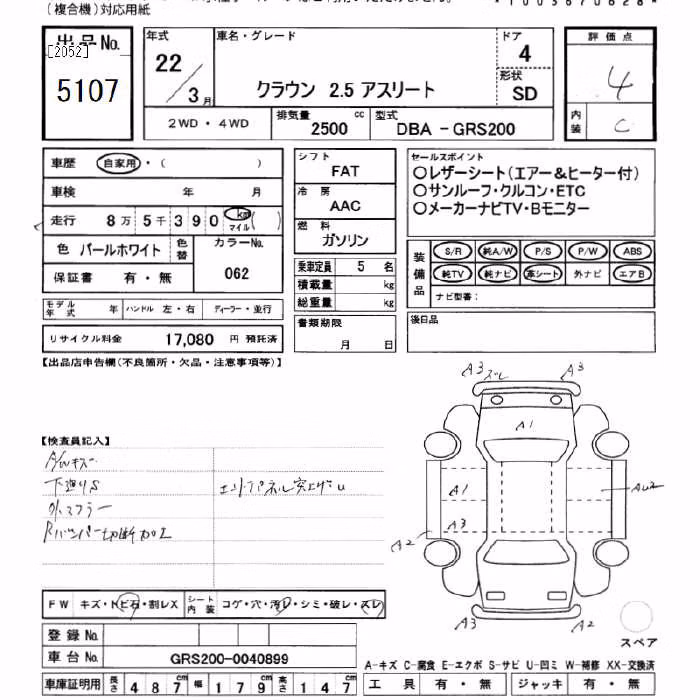 (複合機)対応用紙
出品No.
[2052]
5107
年式
22/3月
車名・グレード
クラウン 2.5 アスリート
ドア
4
形状
SD
評価点
4
内装
C
2WD・4WD
排気量
2500 cc
型式
DBA - GRS200
車歴 自家用・( )
車検 年 月
走行 8万5千390 km マイル ( )
色 パールホワイト 色替
カラーNo.
062
保証書 有・無
モデル年式 年 ハンドル 左・右 ディーラー・並行
リサイクル料金 17,080 円 預託済
シフト
FAT
冷房
AAC
燃料
ガソリン
乗車定員 5 名
積載量 kg
総重量 kg
書類期限
月 日
セールスポイント
○レザーシート(エアー&ヒーター付)
○サンルーフ・クルコン・ETC
○メーカーナビTV・Bモニター
装備品
S/R 純A/W P/S P/W ABS
純TV 純ナビ 革シート 外ナビ エアB
ナビ型番:
後日品
【出品店申告欄(不良箇所・欠品・注意事項等)】
【検査員記入】
A/Wキズ
下廻りS
外マフラー
Rバンパー切断加工
エンドパネル突上げU
A3 ズレ
A3
A1
A1
A3
A2
AU2
A3
A2
スペア
FW キズ・トビ石・割レX シート内装 コゲ・穴・汚レ・シミ・破レ・スレ
登録No.
車台No. GRS200-0040899
車庫証明用 長さ 487cm 幅 179cm 高さ 147cm
A-キズ C-腐食 E-エクボ S-サビ U-凹ミ W-補修 XX-交換済
工具 有・無 ジャッキ 有・無